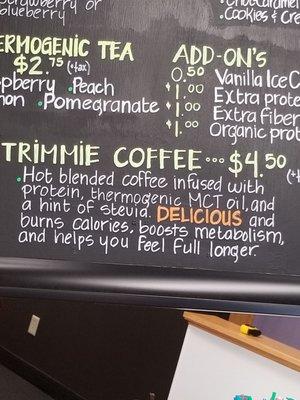 Strawberry or
blueberry
Chocolate
•Cookies & Cre
ERMOGENIC TEA
$2.75 (+tax)
pberry •Peach
•Pomegranate
ADD-ON's
0.50 Vanilla Ice C
$1.00 Extra prote
$1.00 Extra fiber
$1.00 Organic prot
TRIMMIE COFFEE... $4.50
•Hot blended coffee infused with
protein, thermogenic MCT oil, and
a hint of stevia. DELICIOUS and
burns calories, boosts metabolism,
and helps you feel full longer.